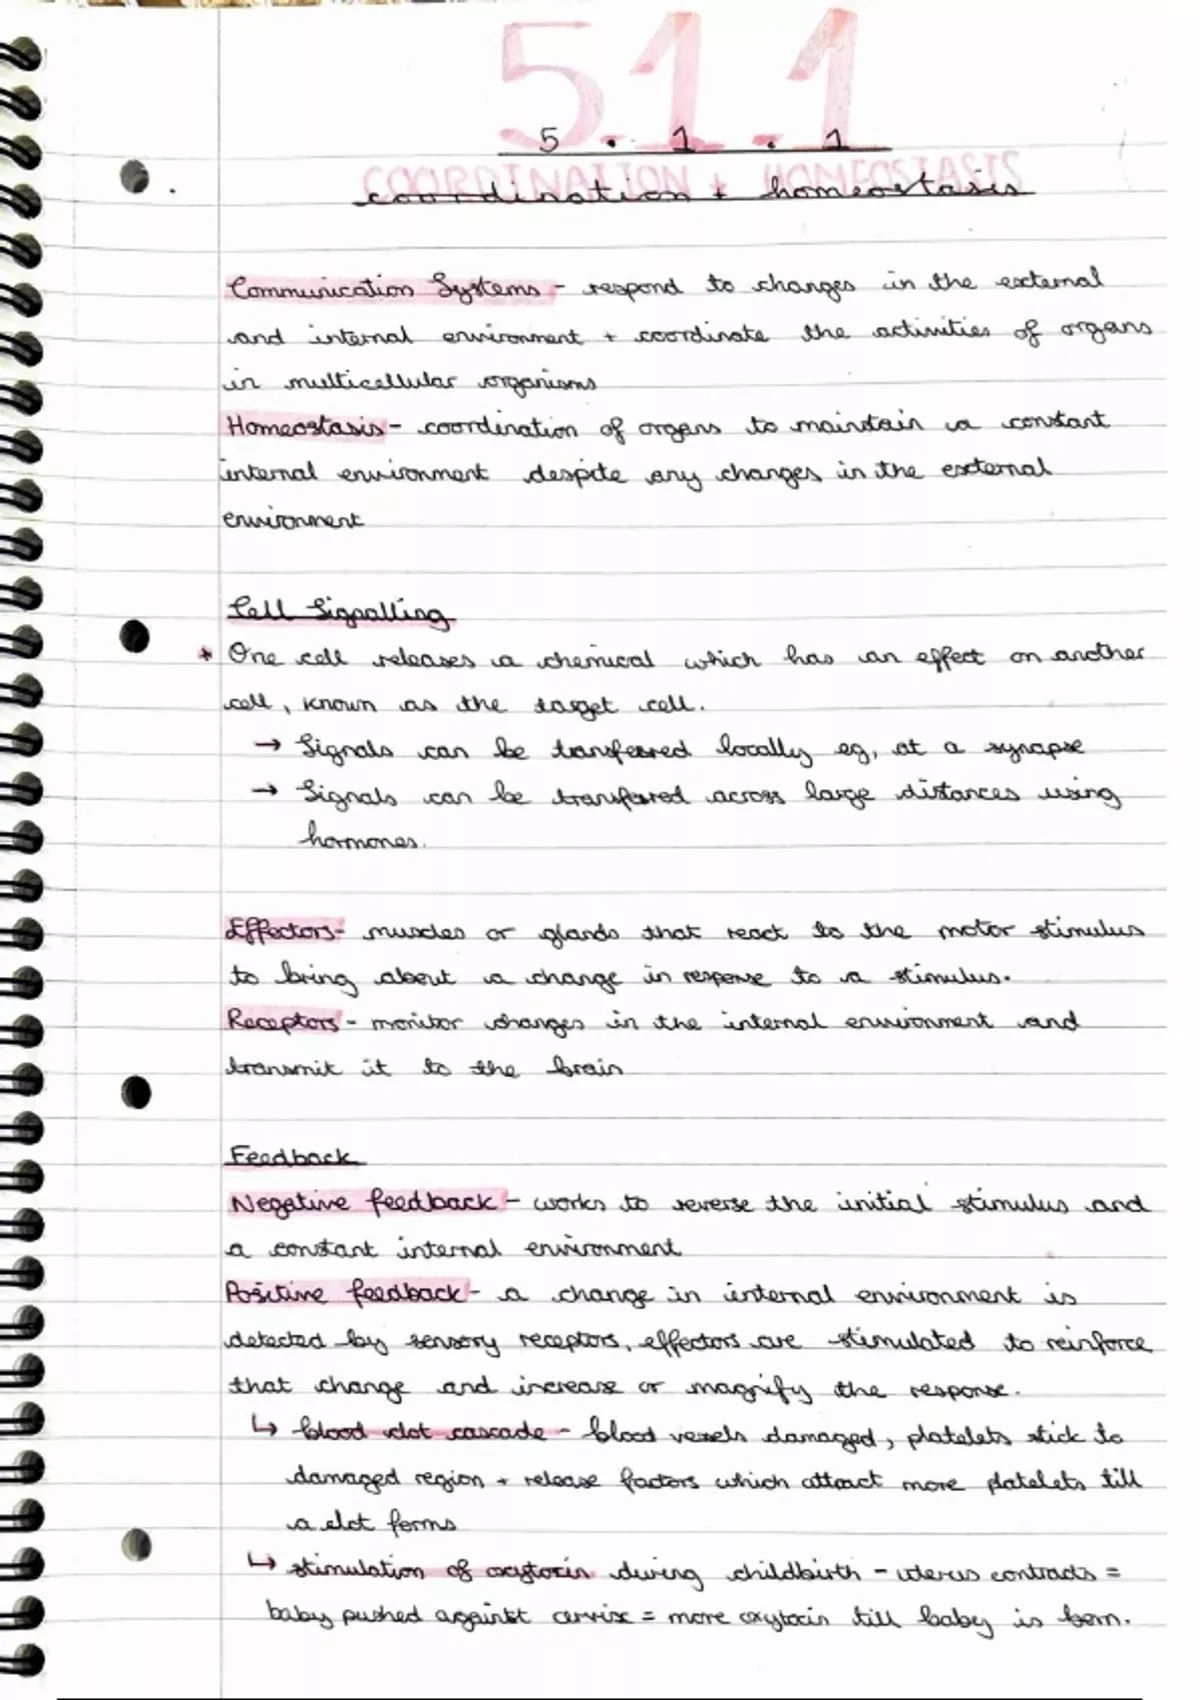 5.1.1
5 . 1 . 1
COORDINATION + HOMEOSTASIS
coordination + homeostasis
Communication Systems - respond to changes in the external
and internal environment + coordinate the activities of organs
in multicellular organisms
Homeostasis - coordination of organs to maintain a constant
internal environment despite any changes in the external
environment
Cell Signalling
* One cell releases a chemical which has an effect on another
cell, known as the target cell.
→ Signals can be transferred locally eg, at a synapse
→ Signals can be transferred across large distances using
hormones.
Effectors - muscles or glands that react to the motor stimulus
to bring about a change in response to a stimulus.
Receptors - monitor changes in the internal environment and
transmit it to the brain
Feedback
Negative feedback - works to reverse the initial stimulus and
a constant internal environment
Positive feedback - a change in internal environment is
detected by sensory receptors, effectors are stimulated to reinforce
that change and increase or magnify the response.
↳ blood clot cascade - blood vessels damaged, platelets stick to
damaged region + release factors which attract more platelets till
a clot forms
↳ stimulation of oxytocin during childbirth - uterus contracts =
baby pushed against cervix = more oxytocin till baby is born.